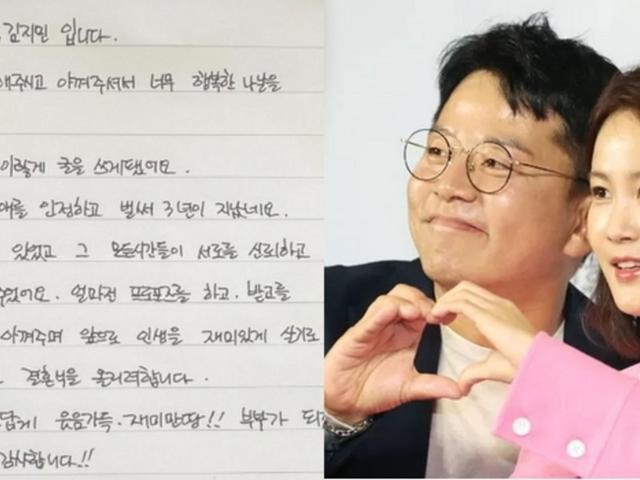 김지민 입니다.
해주시고 아껴주셔서 너무 행복한 나날을
이렇게 글을 쓰게됐어요.
애를 인정하고 벌써 3년이 지났네요.
있었고 그 모든시간들이 서로를 신뢰하고
었어요. 얼마전 프로포즈를 하고. 받고를
아껴주며 앞으로 인생을 재미있게 살기로
결혼식을 올리려합니다.
답게 웃음가득. 재미만땅!! 부부가 되
감사합니다!!